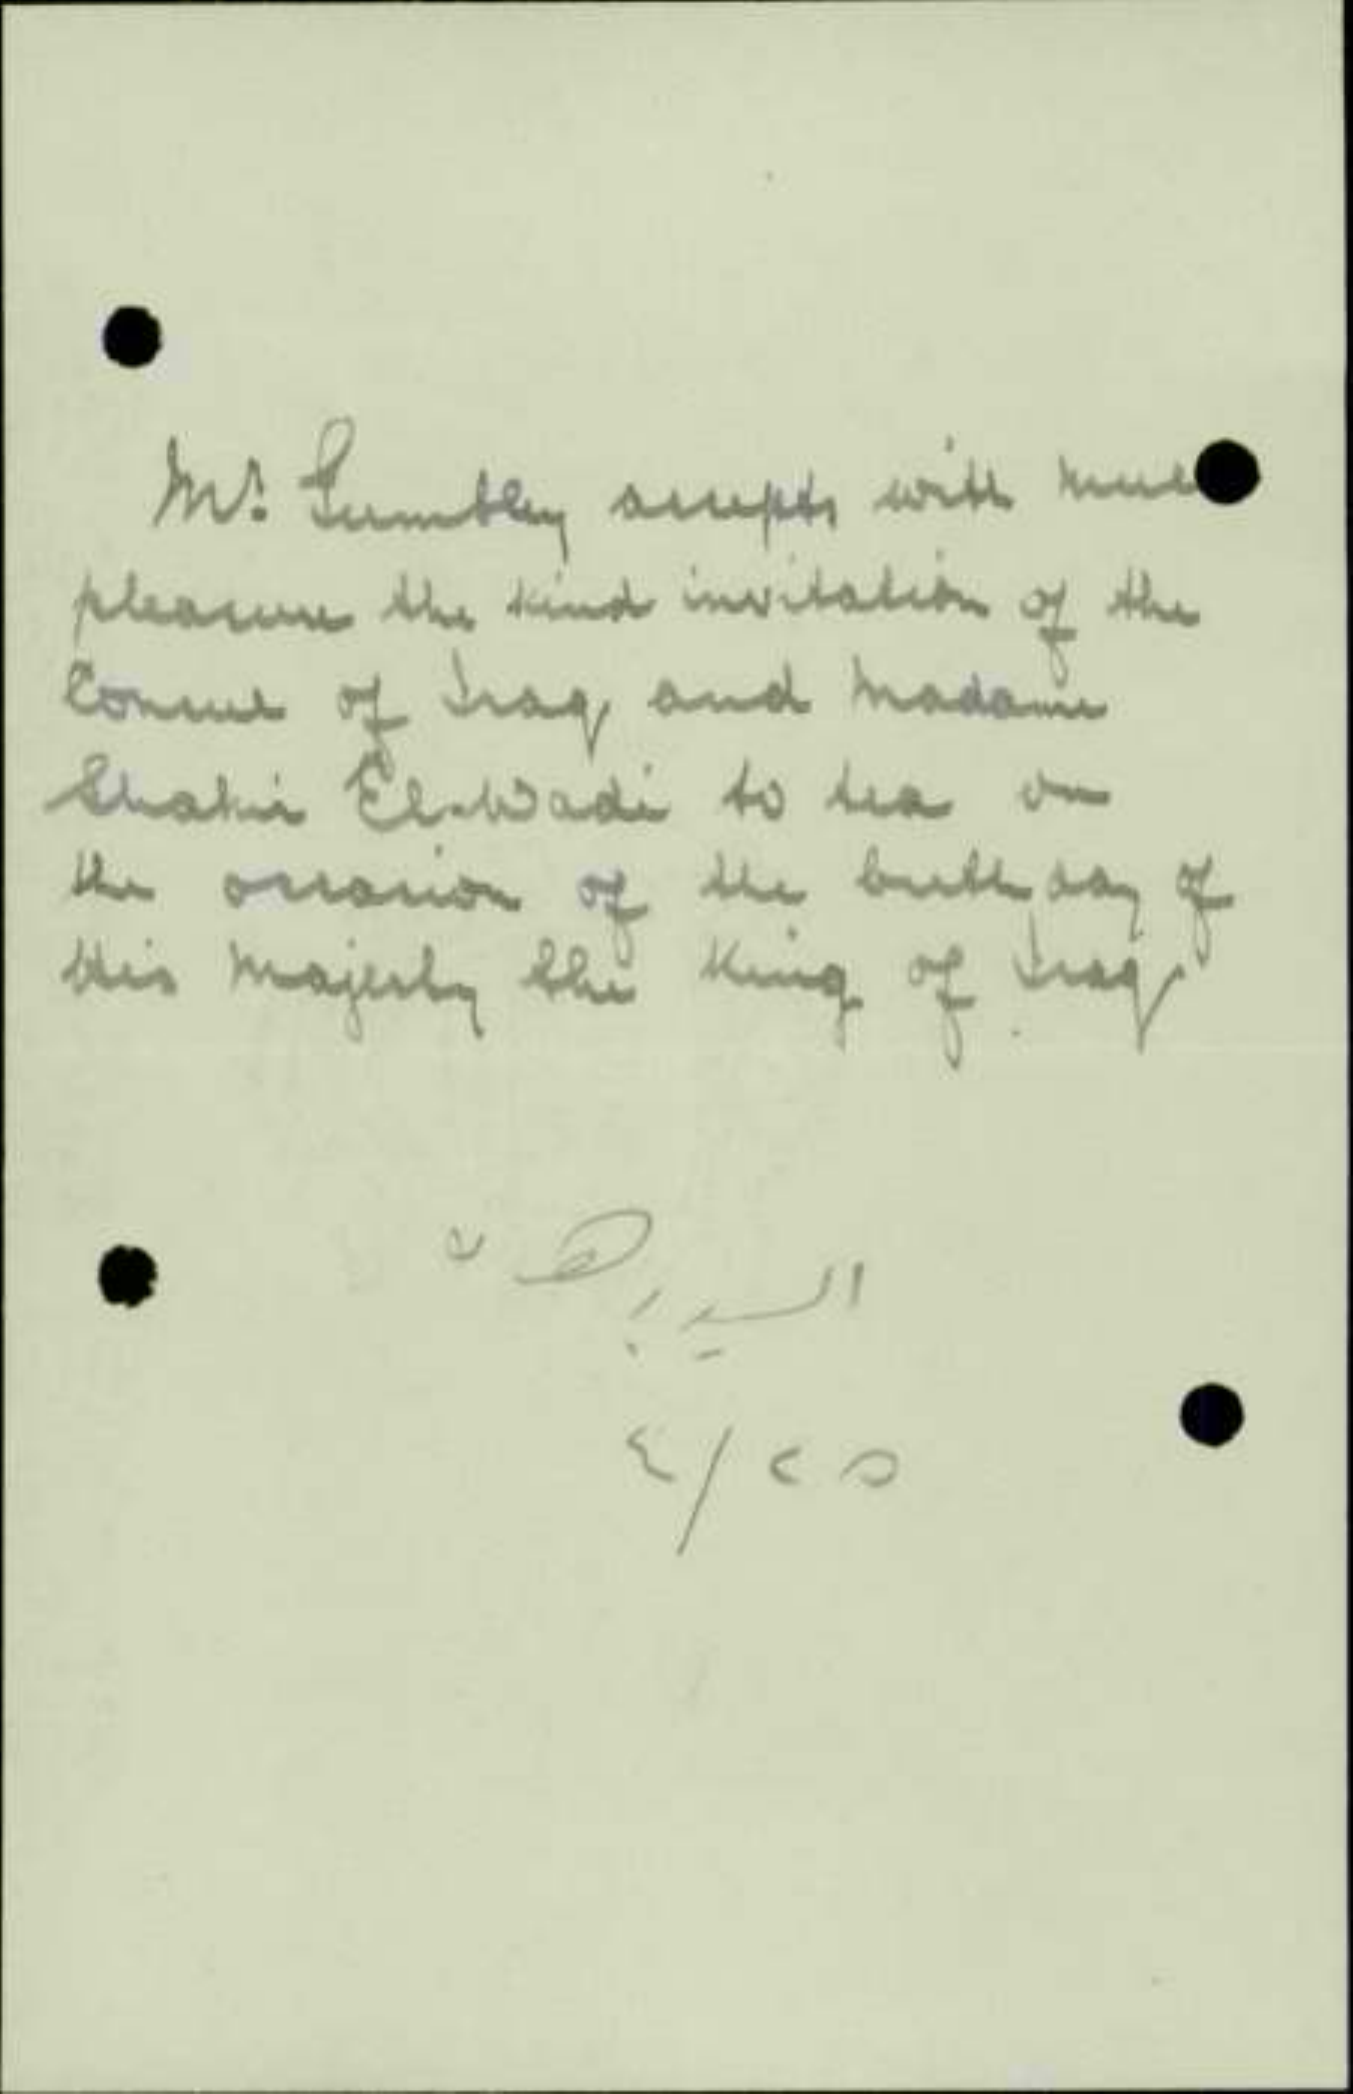 Mr. Gumbley accepts with much
pleasure the kind invitation of the
Consul of Iraq and Madame
Shakir El-Wadi to tea on
the occasion of the birthday of
His Majesty the King of Iraq
٢٥/٤